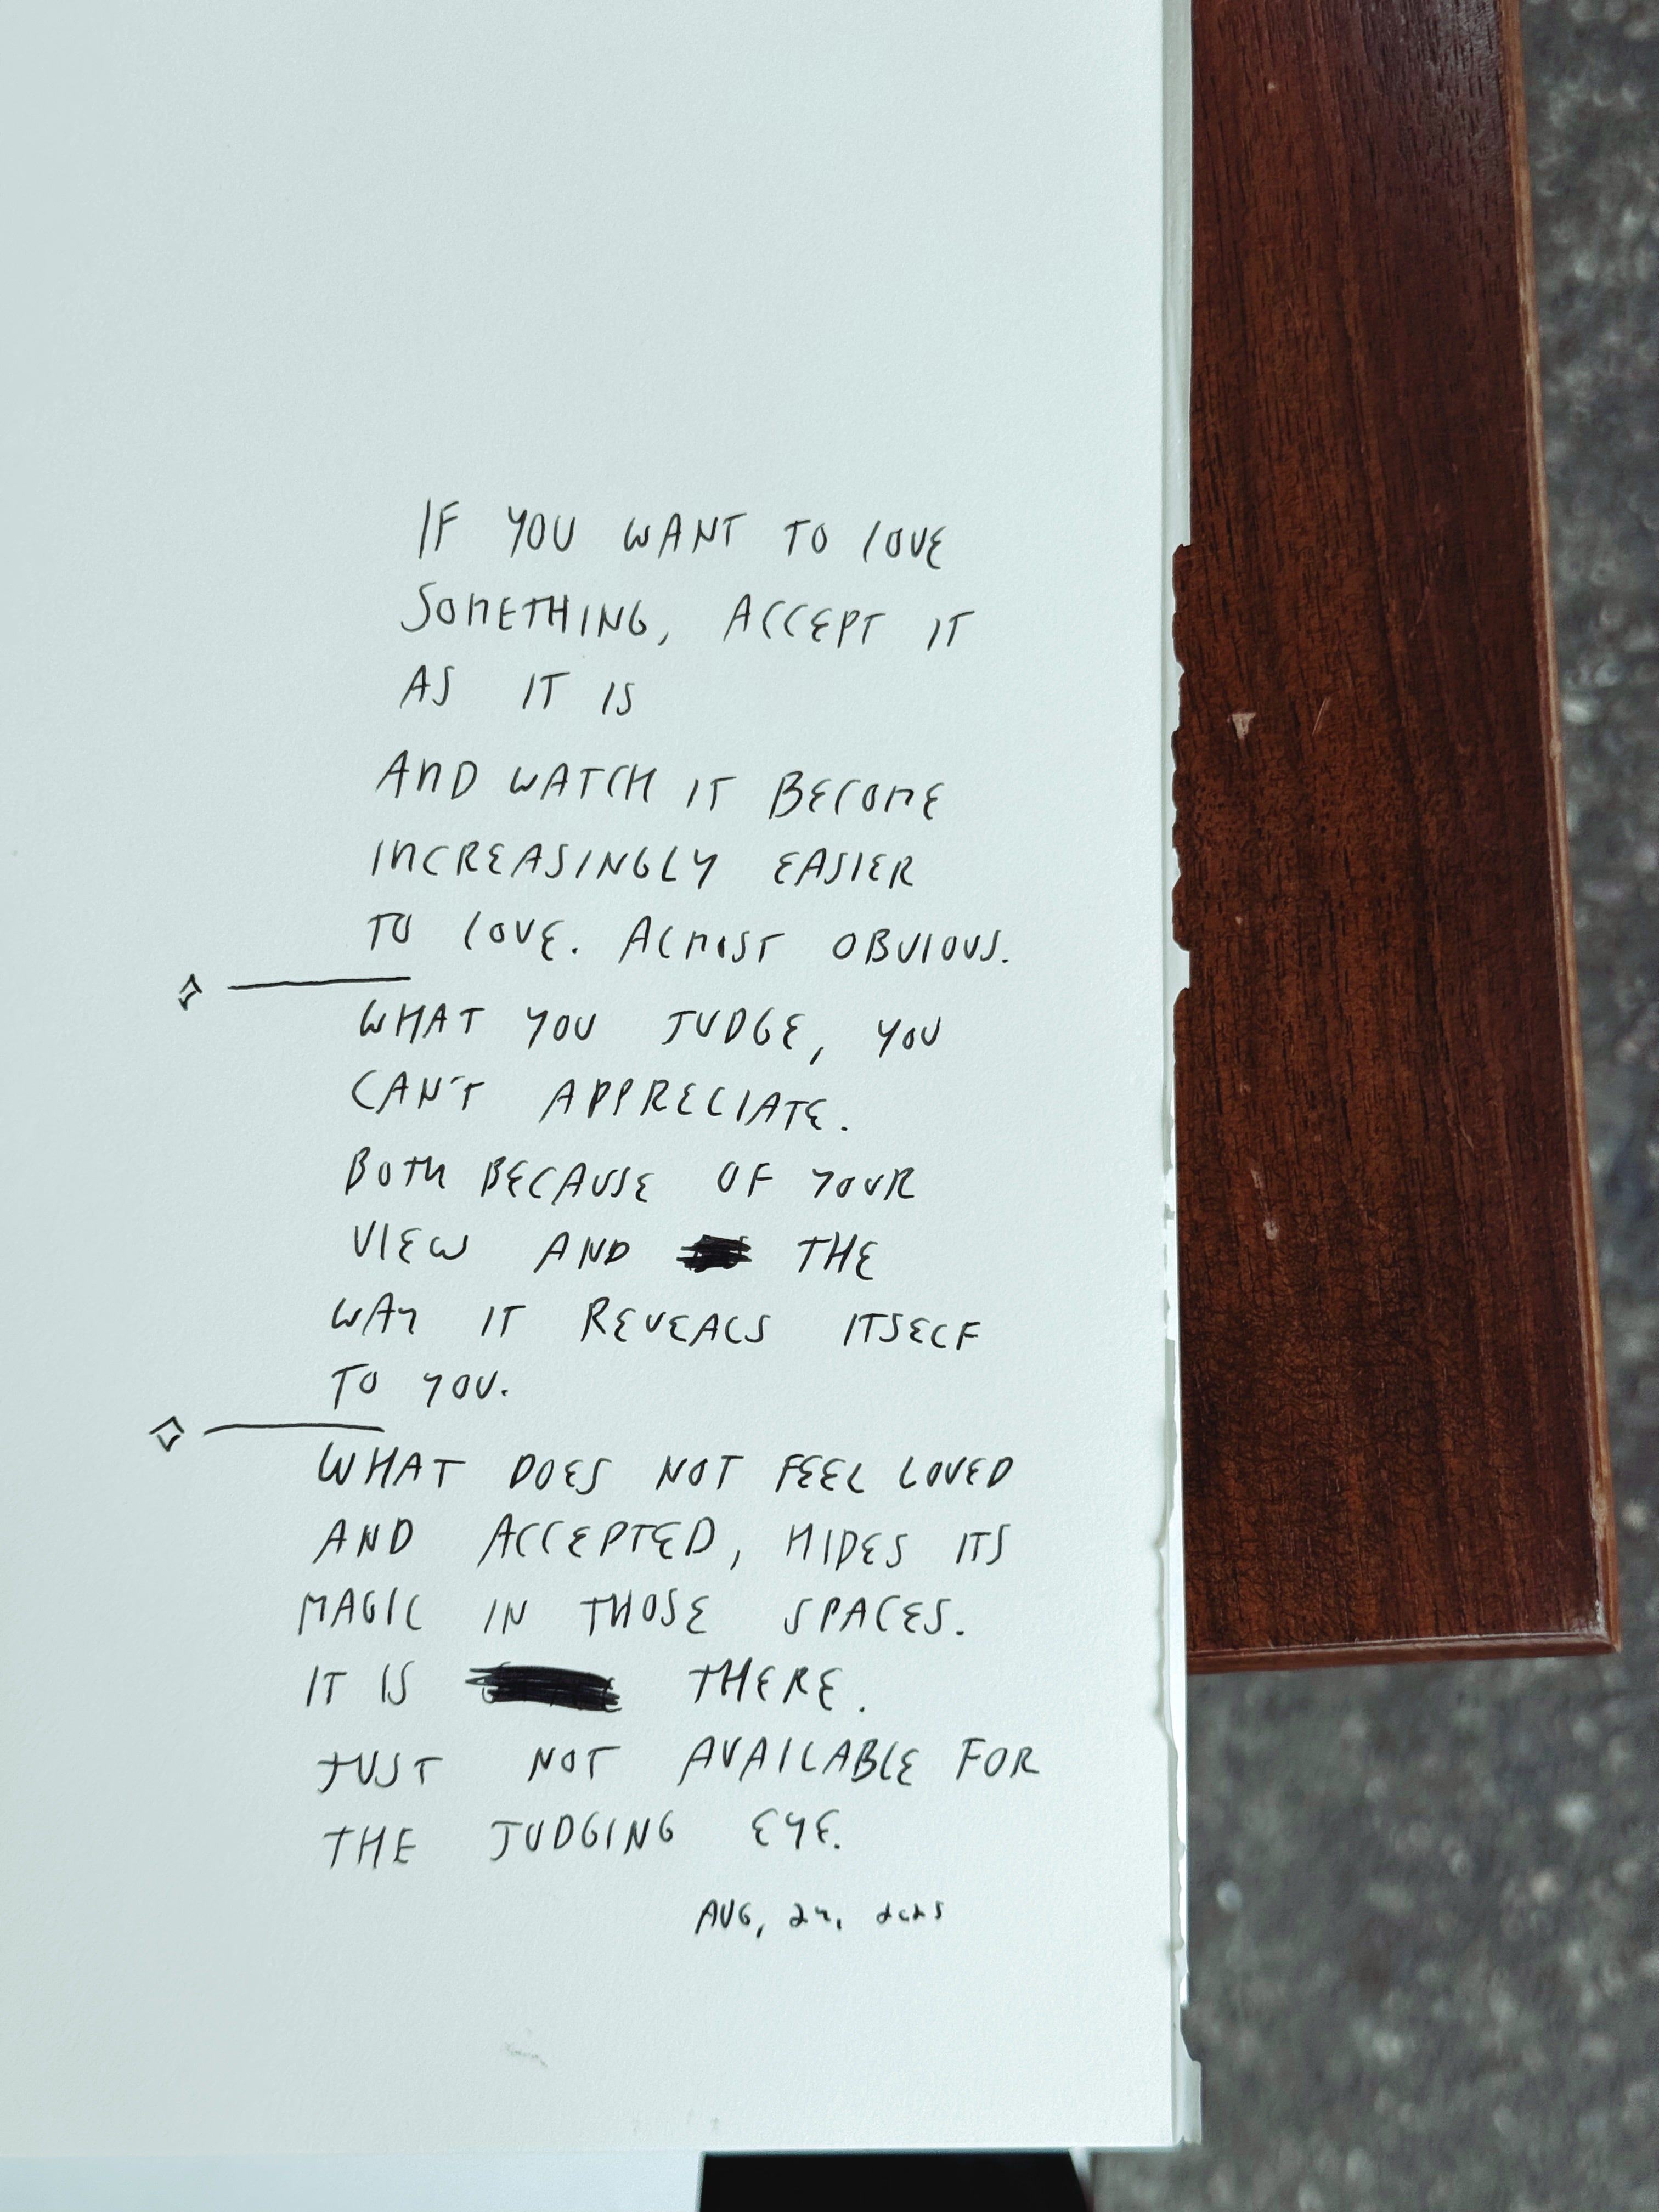 IF YOU WANT TO LOVE
SOMETHING, ACCEPT IT
AS IT IS
AND WATCH IT BECOME
INCREASINGLY EASIER
TO LOVE. ALMOST OBVIOUS.
WHAT YOU JUDGE, YOU
CAN'T APPRECIATE.
BOTH BECAUSE OF YOUR
VIEW AND THE
WAY IT REVEALS ITSELF
TO YOU.
WHAT DOES NOT FEEL LOVED
AND ACCEPTED, HIDES ITS
MAGIC IN THOSE SPACES.
IT IS THERE.
JUST NOT AVAILABLE FOR
THE JUDGING EYE.
AUG, 24, 2025